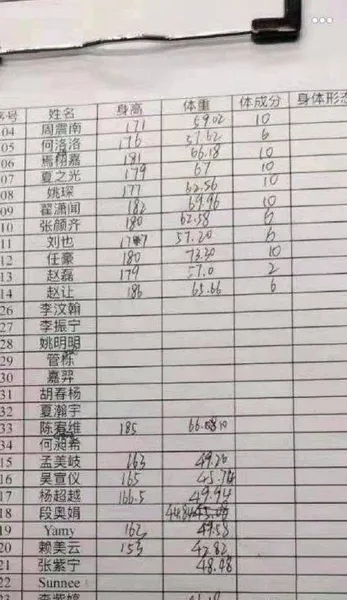 序号 姓名 身高 体重 体成分 身体形态
04 周震南 171 59.02 10
05 何洛洛 176 57.62 6
06 焉栩嘉 181 66.18 10
07 夏之光 179 67 10
08 姚琛 177 62.56 10
09 翟潇闻 182 69.96 10
10 张颜齐 180 62.58 6
11 刘也 57.20 6
12 任豪 180 73.30 10
13 赵磊 179 57.0 2
14 赵让 186 65.66 6
26 李汶翰
27 李振宁
28 姚明明
29 管栎
30 嘉羿
31 胡春杨
32 夏瀚宇
33 陈宥维 185
34 何昶希
15 孟美岐 163 49.20
16 吴宣仪 165 45.74
17 杨超越 166.5 49.94
18 段奥娟
19 Yamy 162 49.58
20 赖美云 153 42.82
21 张紫宁 48.98
22 Sunnee
23 李紫婷